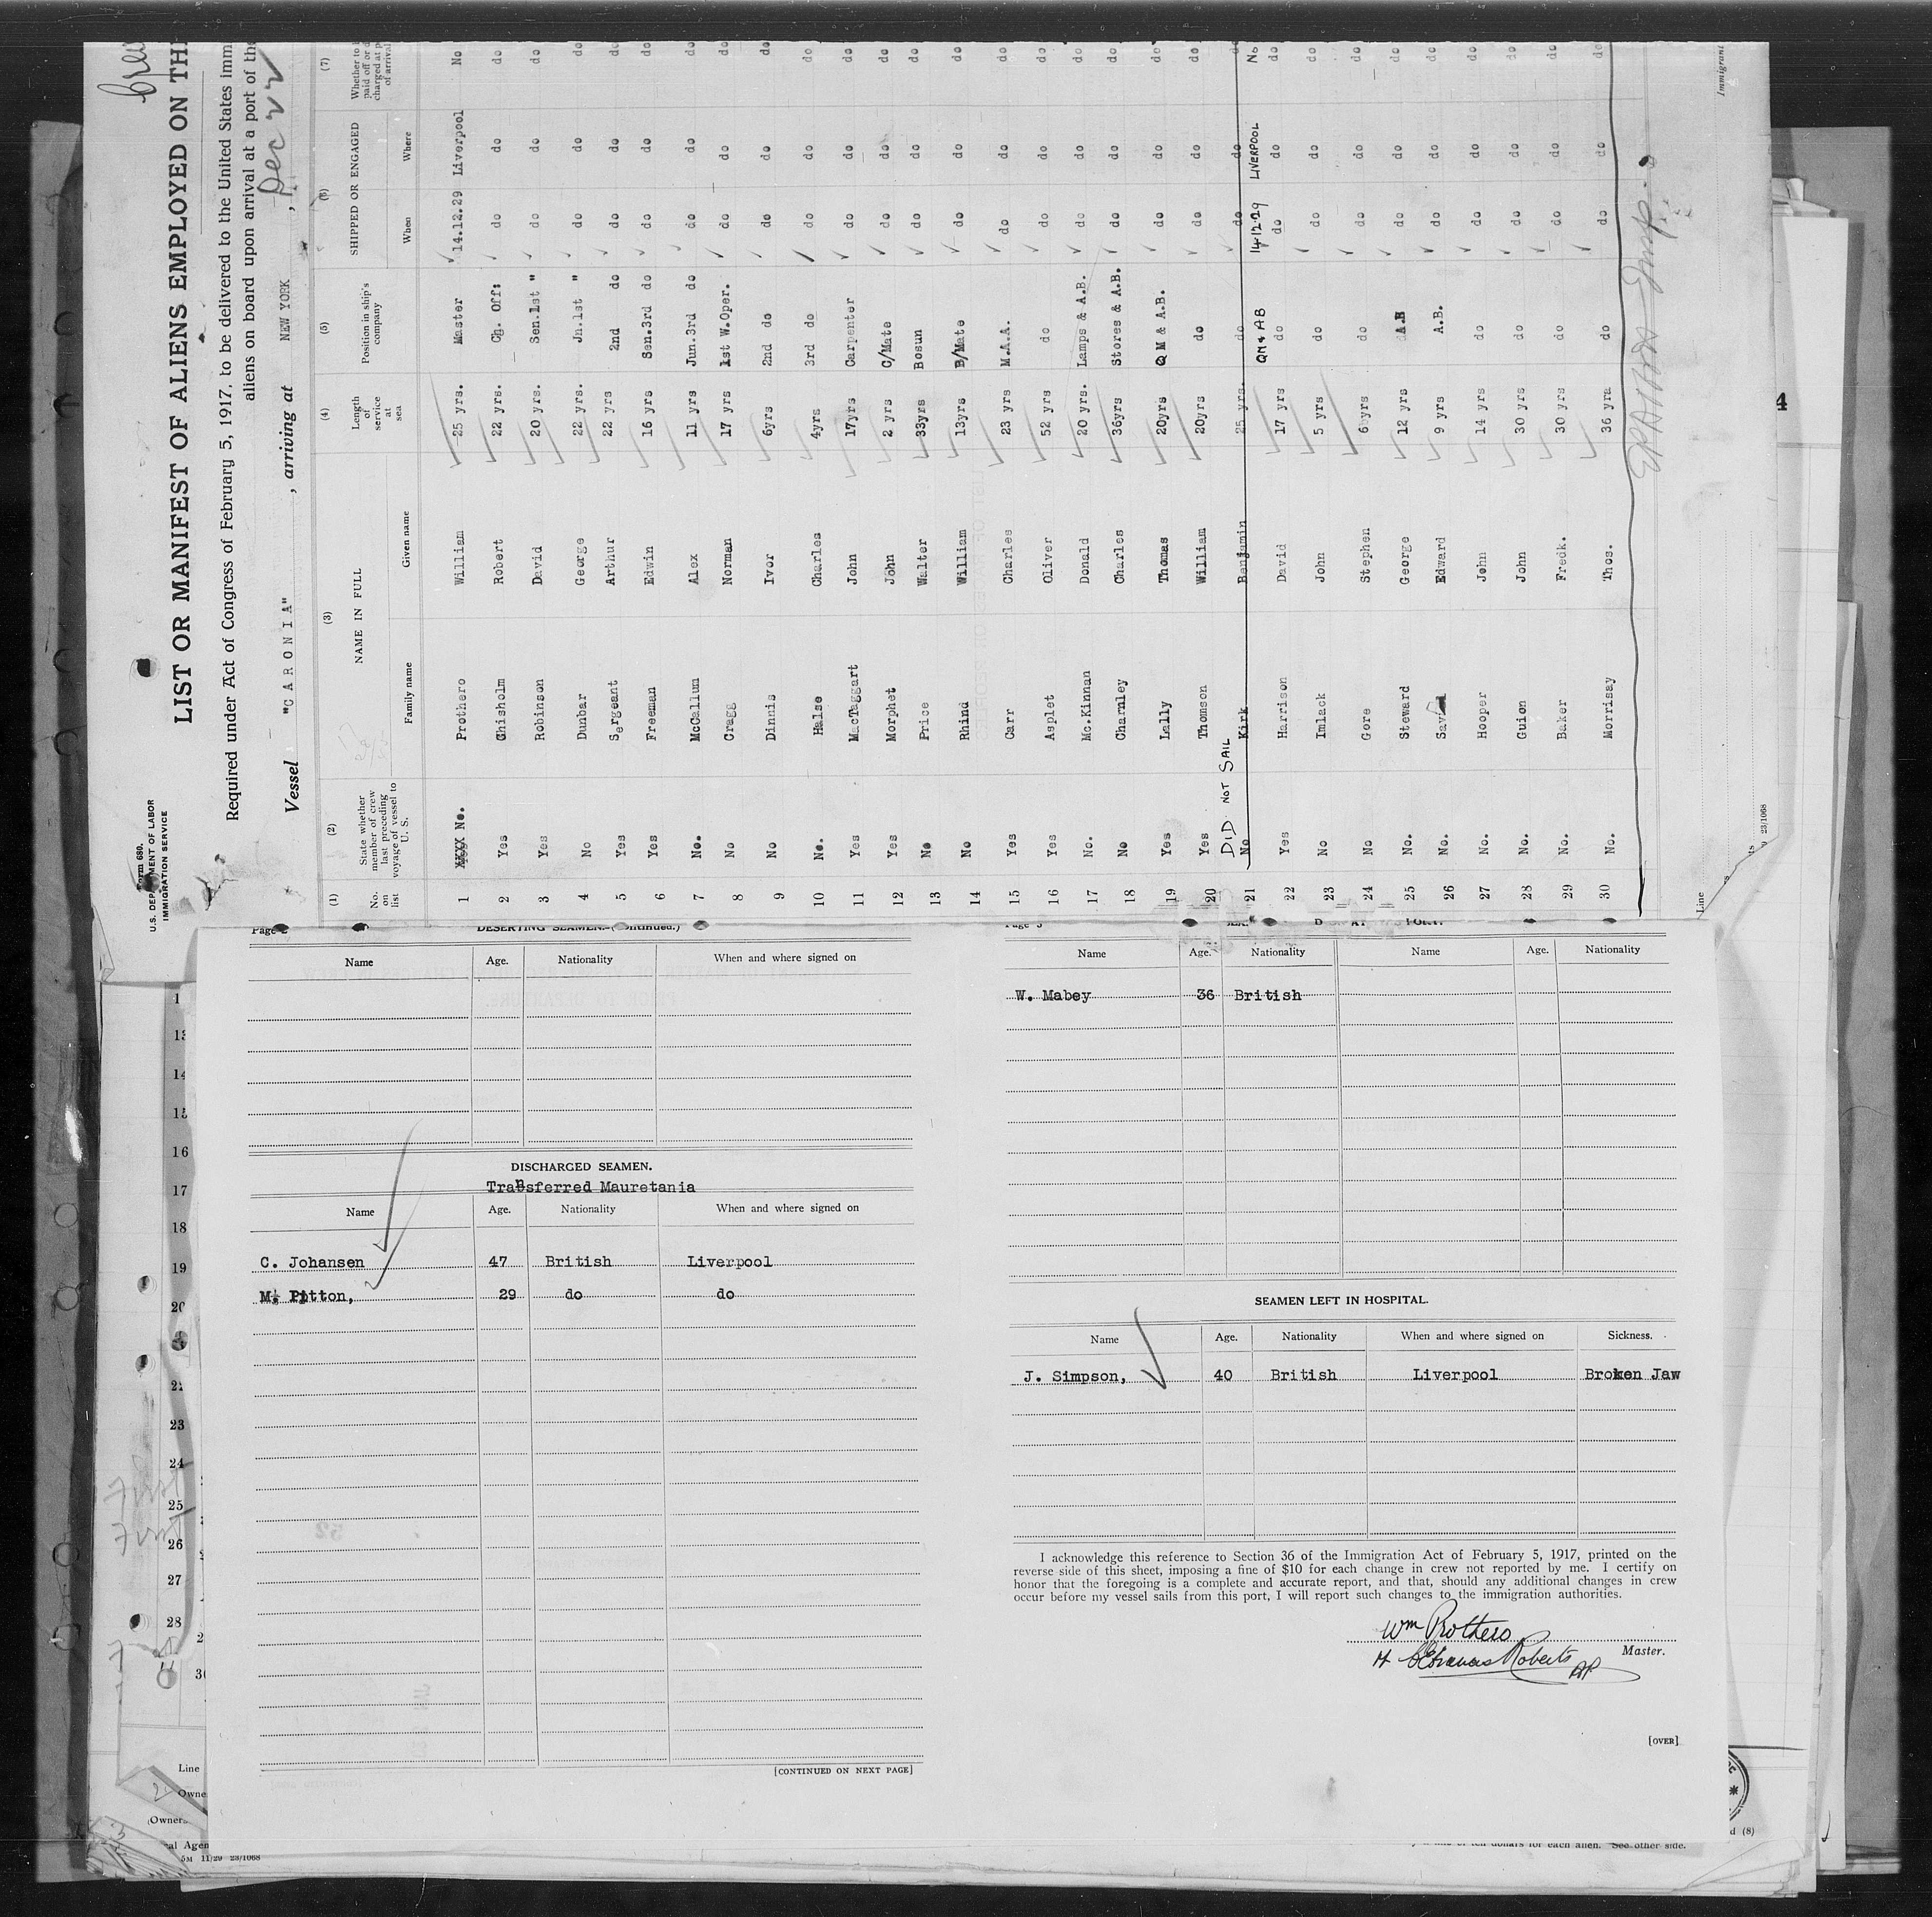 Crew
Form 680.
U.S. DEPARTMENT OF LABOR
IMMIGRATION SERVICE
LIST OR MANIFEST OF ALIENS EMPLOYED ON TH
Required under Act of Congress of February 5, 1917, to be delivered to the United States imm
aliens on board upon arrival at a port of the
Vessel "CARONIA", arriving at NEW YORK, Dec 22
(1) (2) (3) (4) (5) (6) (7)
No. on list State whether member of crew last preceding voyage of vessel to U. S. NAME IN FULL Length of service at sea Position in ship's company SHIPPED OR ENGAGED Whether to
Family name Given name When Where
1 XXXX No. Prothero William 25 yrs. Master 14.12.29 Liverpool No
2 Yes Chisholm Robert 22 yrs. Ch. Off: do do do
3 Yes Robinson David 20 yrs. Sen.1st " do do do
4 No Dunbar George 22 yrs. Jn.1st " do do do
5 Yes Sergeant Arthur 22 yrs 2nd do do do do
6 Yes Freeman Edwin 16 yrs Sen.3rd do do do do
7 No. McCallum Alex 11 yrs Jun.3rd do do do do
8 No Cragg Norman 17 yrs 1st W.Oper. do do do
9 No Dinnis Ivor 6yrs 2nd do do do do
10 No. Halse Charles 4yrs 3rd do do do do
11 Yes MacTaggart John 17yrs Carpenter do do do
12 Yes Morphet John 2 yrs C/Mate do do do
13 No Price Walter 33yrs Bosun do do do
14 No Rhind William 13yrs B/Mate do do do
15 Yes Carr Charles 23 yrs M.A.A. do do do
16 Yes Asplet Oliver 52 yrs do do do do
17 No. Mc.Kinnan Donald 20 yrs. Lamps & A.B. do do do
18 No Charnley Charles 36yrs Stores & A.B. do do do
19 Yes Lally Thomas 20yrs Q M & A.B. do do do
20 Yes Thomson William 20yrs do do do do
DID NOT SAIL
21 No Kirk Benjamin 25 yrs. do do do
QM & AB 14-12-29 LIVERPOOL No
22 Yes Harrison David 17 yrs do do do do
23 No Imlack John 5 yrs do do do do
24 No Gore Stephen 6 yrs do do do do
25 No. Steward George 12 yrs A.B do do do
26 No. Edward 9 yrs A.B. do do do
27 No. Hooper John 14 yrs do do do do
28 No. Guion John 30 yrs do do do do
29 No. Baker Fredk. 30 yrs do do do do
30 No. Morrisay Thos. 36 yrs do do do do
Immigrant
Line
23/1068
Page 2 DESERTING SEAMEN.-(Continued.)
Name Age. Nationality When and where signed on
DISCHARGED SEAMEN.
Transferred Mauretania
Name Age. Nationality When and where signed on
C. Johansen 47 British Liverpool
M. Pitton, 29 do do
[CONTINUED ON NEXT PAGE]
Page 3
Name Age. Nationality Name Age. Nationality
W. Mabey 36 British
SEAMEN LEFT IN HOSPITAL.
Name Age. Nationality When and where signed on Sickness.
J. Simpson, 40 British Liverpool Broken Jaw
I acknowledge this reference to Section 36 of the Immigration Act of February 5, 1917, printed on the
reverse side of this sheet, imposing a fine of $10 for each change in crew not reported by me. I certify on
honor that the foregoing is a complete and accurate report, and that, should any additional changes in crew
occur before my vessel sails from this port, I will report such changes to the immigration authorities.
Wm Prothero
Roberts
Master.
[OVER]
16
17
18
19
20
23
24
25
26
27
28
Line
Owne
Owner
al Agen
5M 11/29 23/1068
dollars for each alien. See other side.
d (8)
4